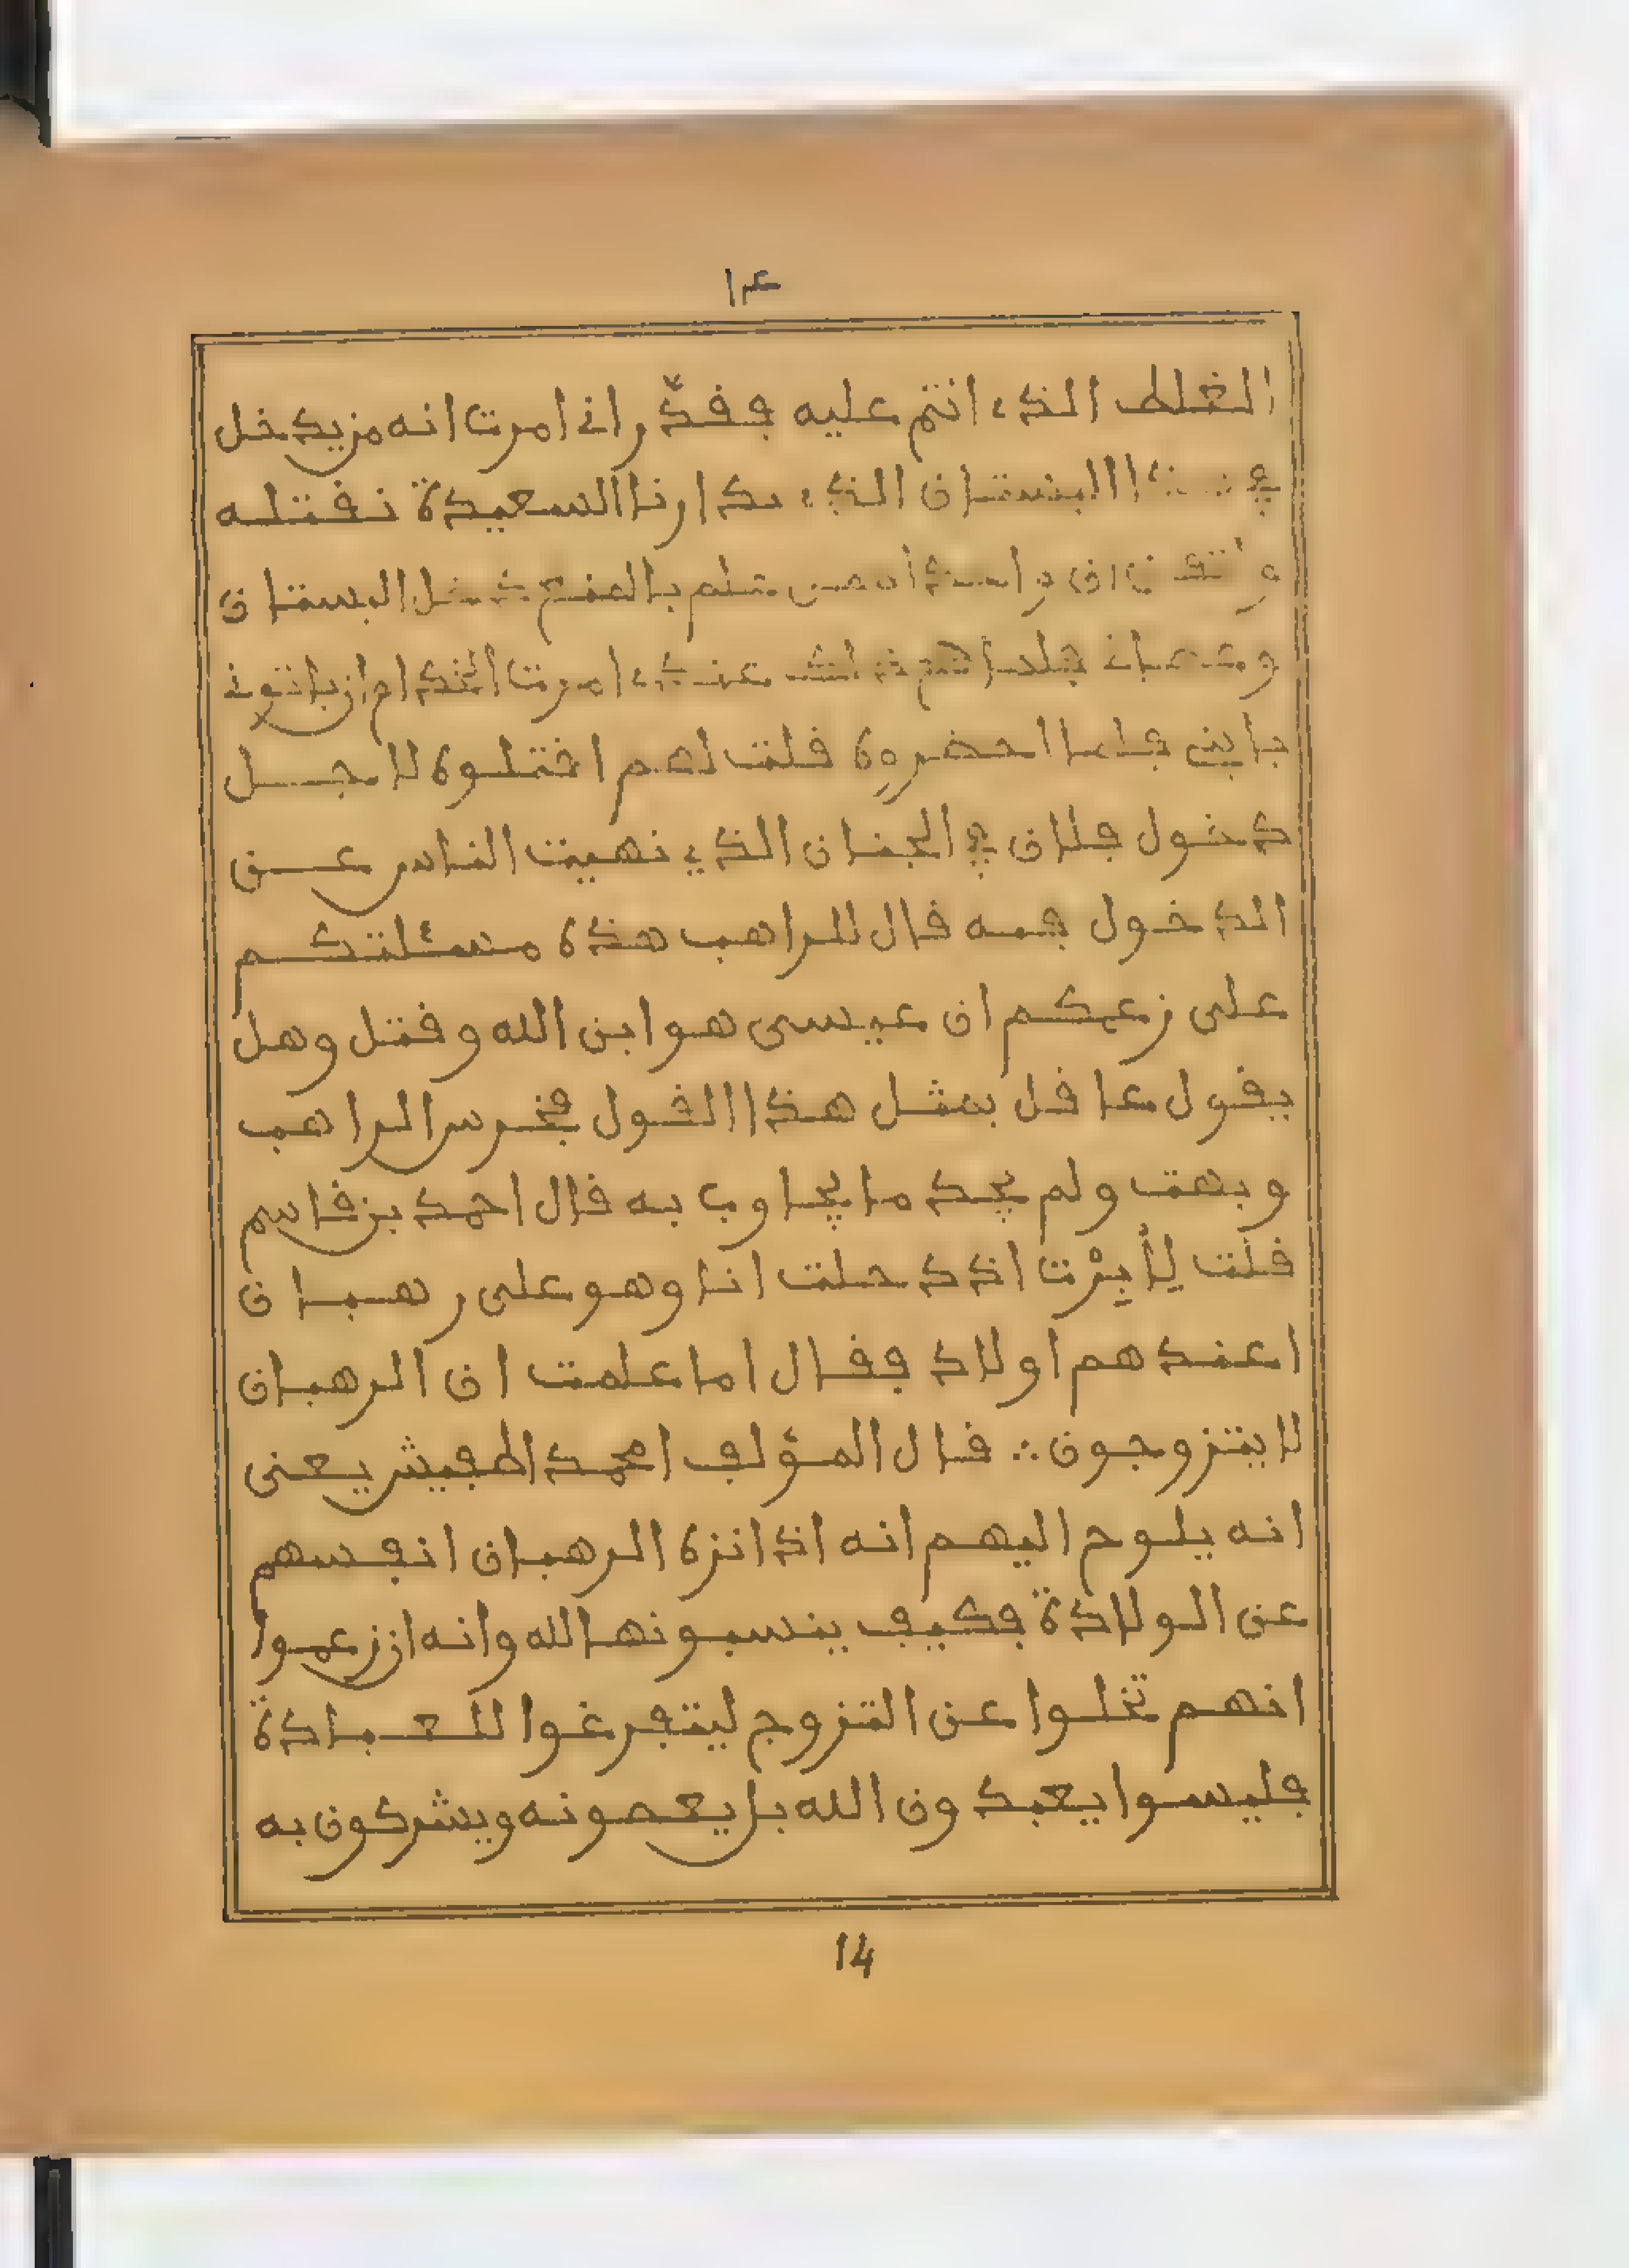 ١٤
الغلط الذي انتم عليه فقدّر اني امرت انه من يدخل
في هذا البستان الذي بدارنا السعيدة نقتله
بالمنع دخل البستان
وعصاني فلما ذلك عندي امرت الخدام ان ياتوني
بابني فلما احضروه قلت لهم اقتلوه لاجل
دخول فلان في الجنان الذي نهيت الناس عن
الدخول فيه قال للراهب هذه مسئلتكم
على زعمكم ان عيسى هو ابن الله وقتل وهل
يقول عاقل بمثل هذا القول فخرس الراهب
وبهت ولم يجد ما يجاوب به قال احمد بن قاسم
قلت لِأُبِرْت اذ دخلت انا وهو على رهبان
اعندهم اولاد فقال اما علمت ان الرهبان
لا يتزوجون ∴ قال المؤلف امحمد اطفيش يعنى
انه يلوح اليهم انه اذا نزه الرهبان انفسهم
عن الولادة فكيف ينسبونها لله وانه ان زعموا
انهم تخلوا عن التزوج ليتفرغوا للعبادة
فليسوا يعبدون الله بل يعصونه ويشركون به
14